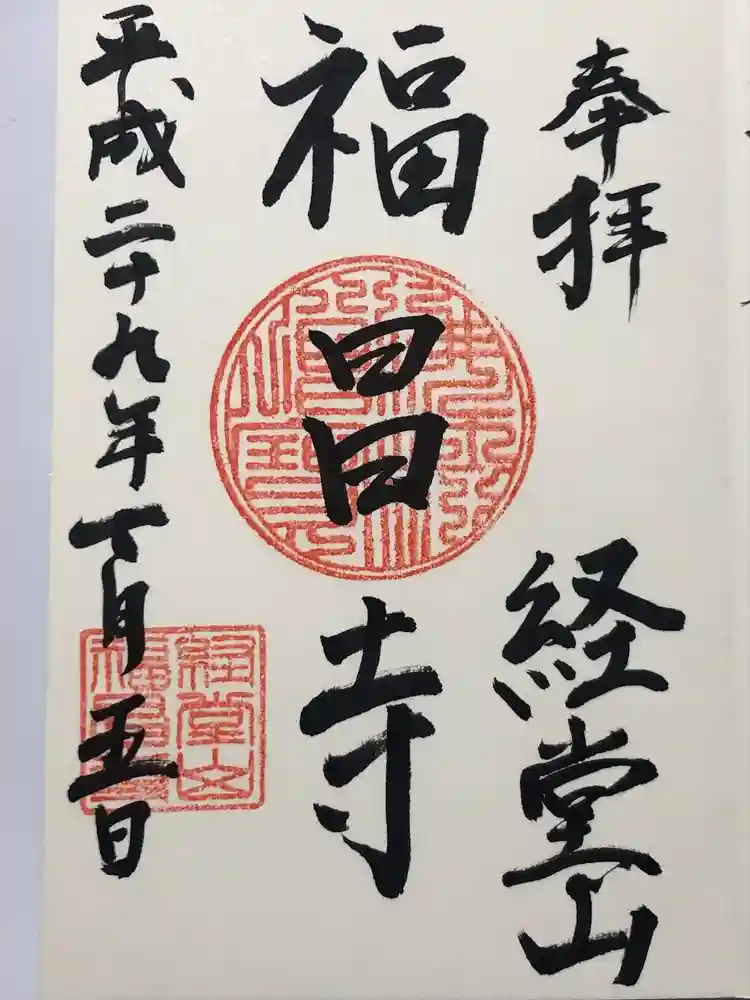 奉拝
経堂山
福昌寺
平成二十九年 月五日
経堂山
福昌寺